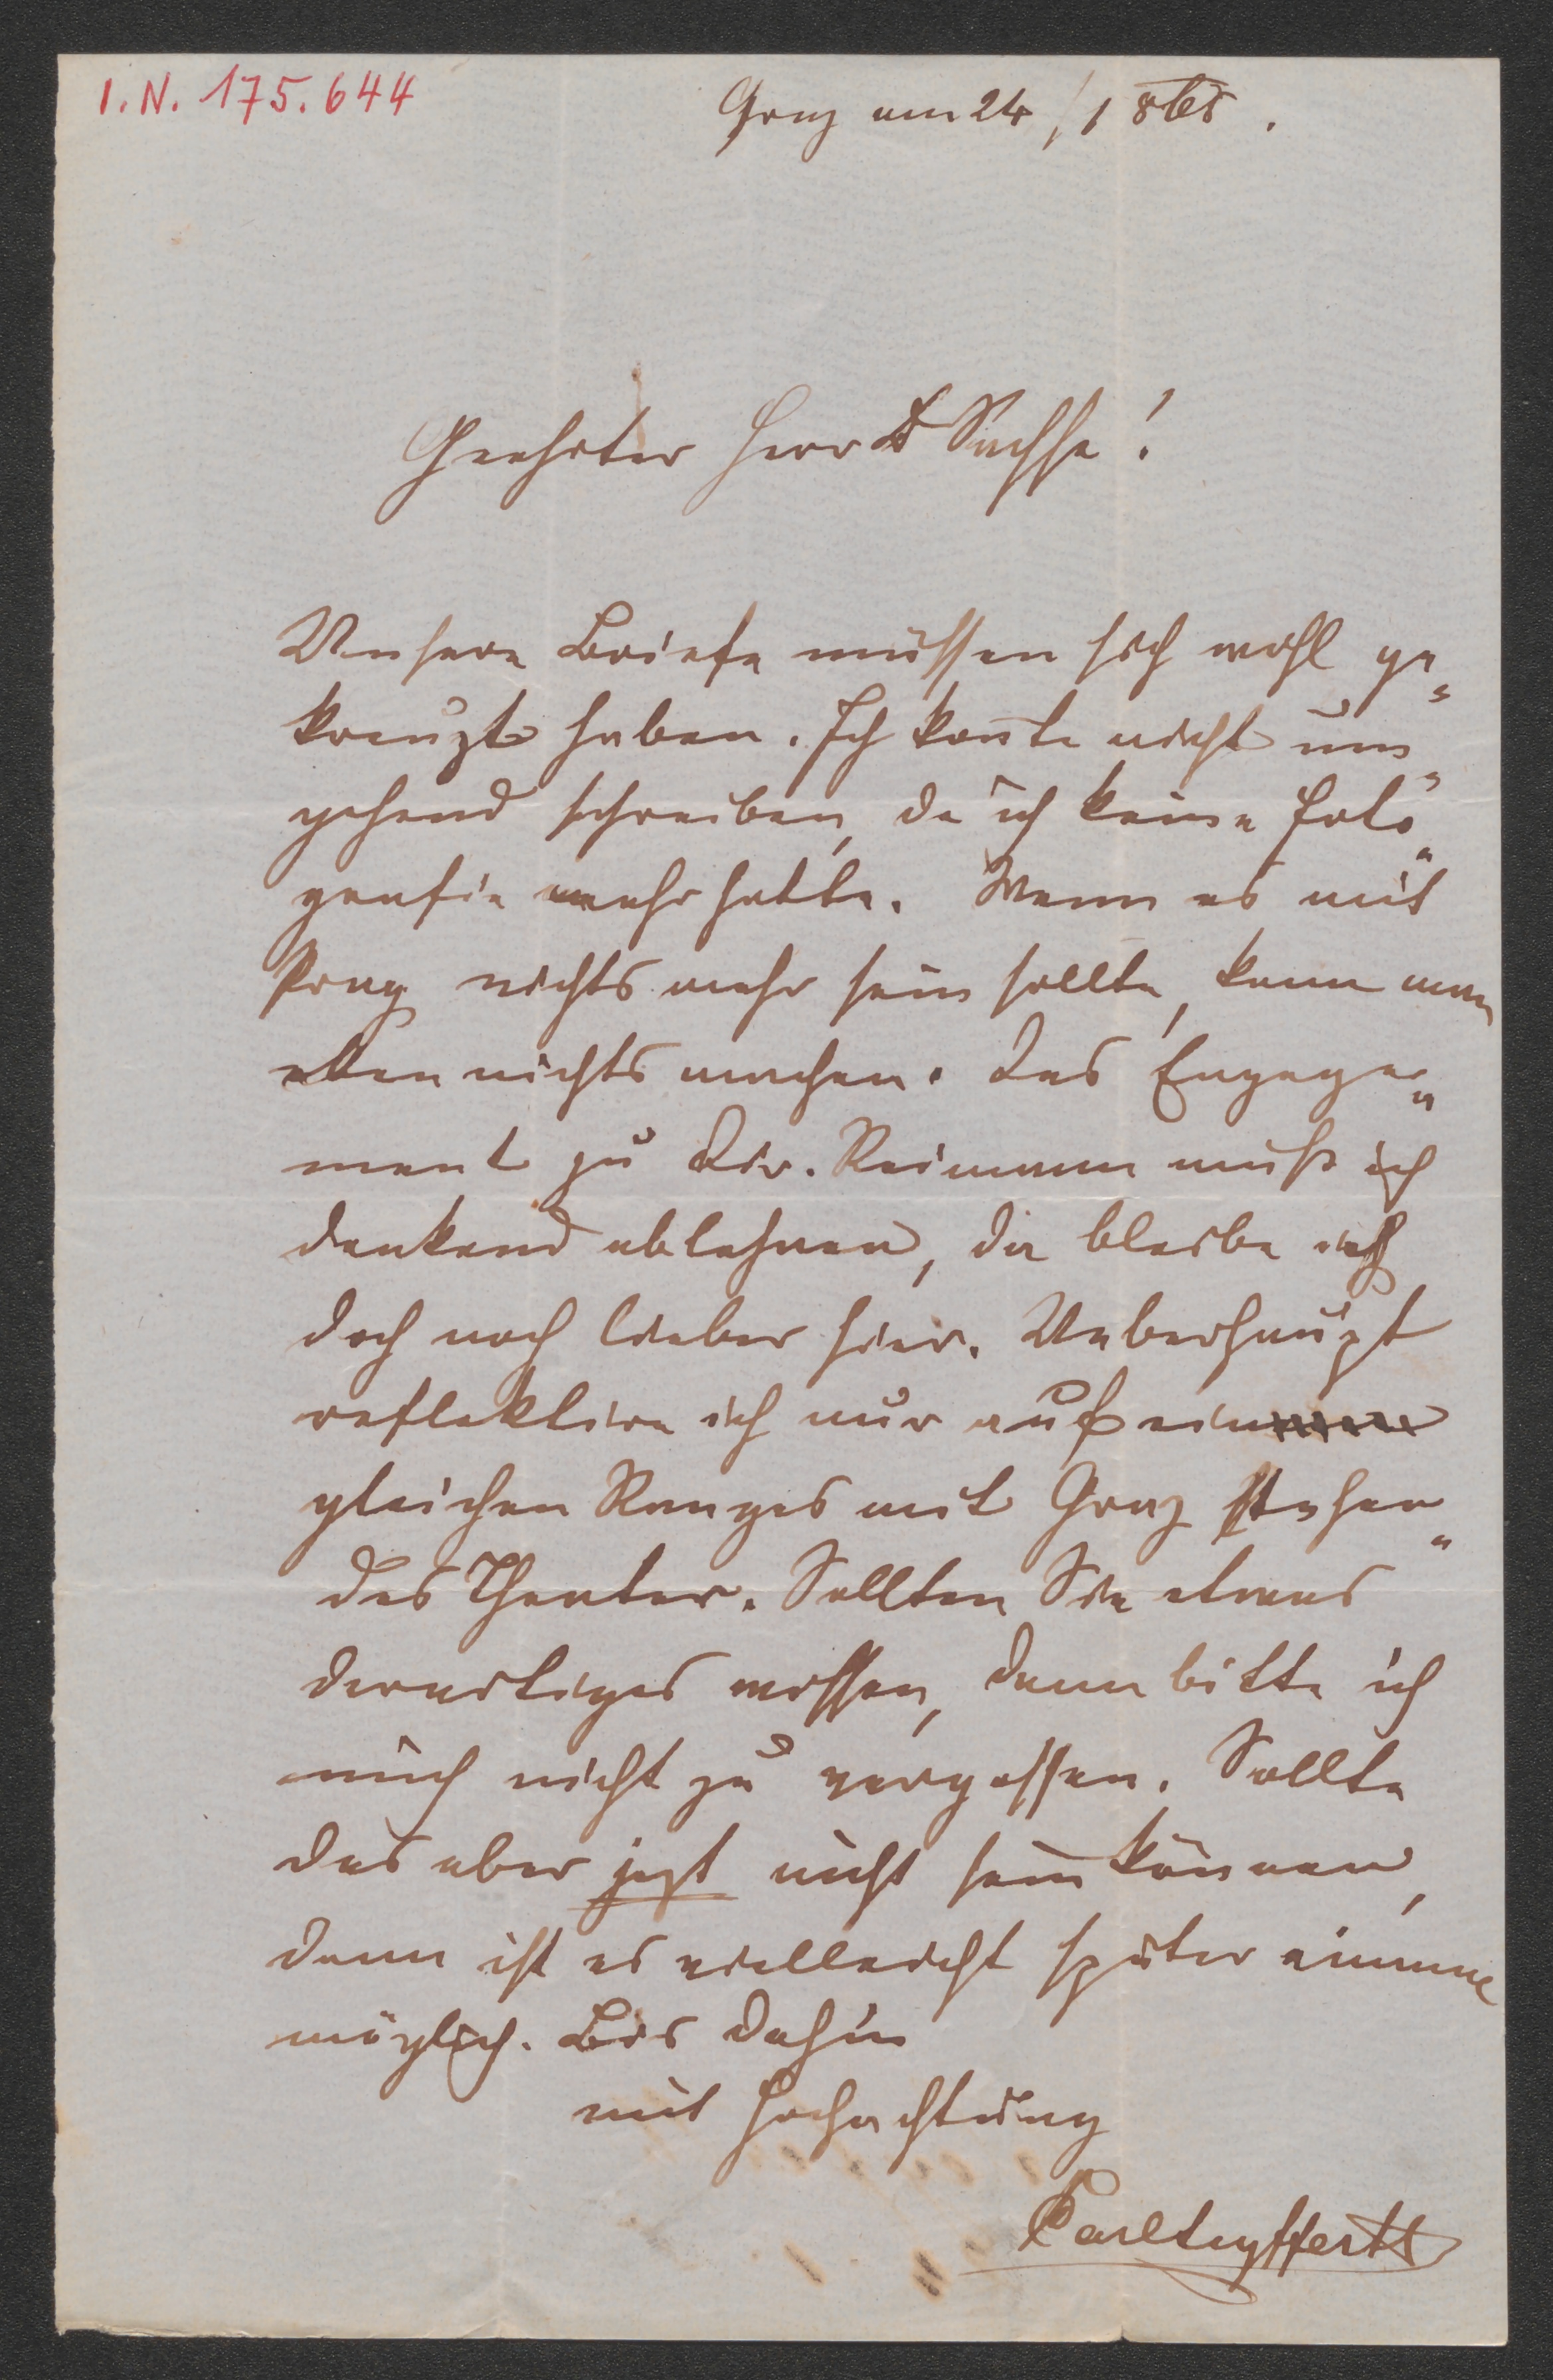 I.N. 175.644
Graz am 24/1 8bs.
Geehrter Herr D Sachse!
Unsere Briefe müssen sich wohl ge-
kreuzt haben. Ich kon̄te nicht um-
gehend schreiben, da ich keine Foto-
grafie mehr hatte. Wenn es mit
Prag nichts mehr sein sollte, kann man
eben nichts machen. Das Engage-
ment zu Dir. Reimann muß ich
dankend ablehnen, da bleibe ich
doch noch lieber hier. Ueberhaupt
reflektire ich nur auf ein
gleichen Ranges mit Graz stehen-
des Theater. Sollten Sie etwas
derartiges wissen, dann bitte ich
mich nicht zu vergessen. Sollte
das aber jezt nicht sein können,
dann ist es vielleicht später einmal
möglich. Bis dahin
mit Hochachtung